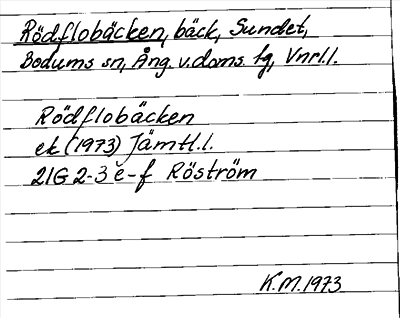 Rödflobäcken, bäck, Sundet,
Bodums sn, Ång. v. doms. tg, Vnrl. l.
Rödflobäcken
ek (1973) Jämtl. l.
21G 2-3 e-f Röström
K.M. 1973